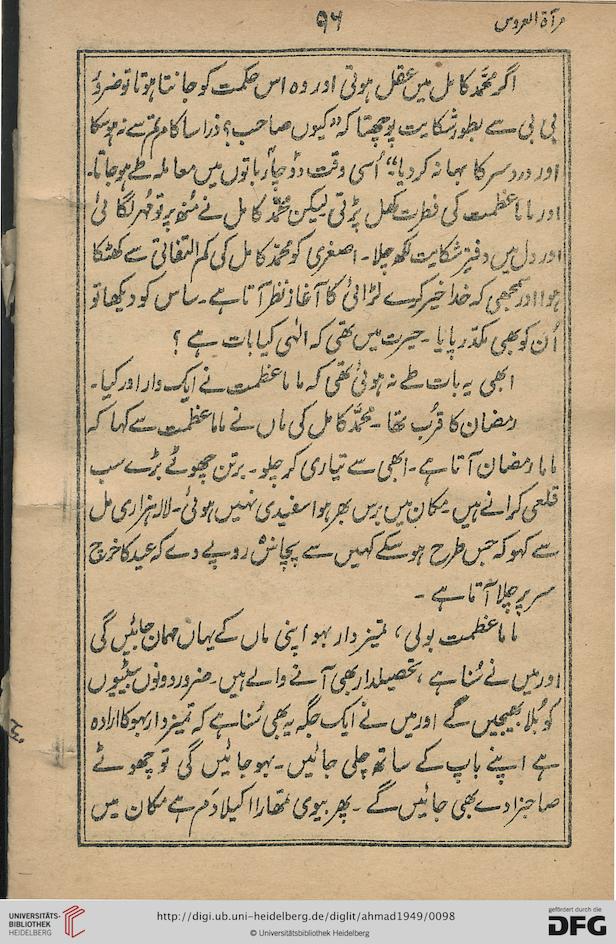 مرآۃ العروس
۹۶
اگر محمّد کامل میں عقل ہوتی اور وہ اس حکمت کو جانتا ہوتا تو ضرور
بی بی سے بطور شکایت پوچھتا کہ "کیوں صاحب؟ ذرا سا کام تم سے نہ ہو سکا
اور دردِ سر کا بہانہ کر دیا" اُسی وقت دو چار باتوں میں معاملہ طے ہو جاتا۔
اور ماما عظمت کی فطرت کھل پڑتی لیکن محمّد کامل نے مُنھ پر تو مُہر لگائی
اور دل میں دفترِ شکایت لکھ چلا۔ اصغری کو محمّد کامل کی کم التفاتی سے کھٹکا
ہوا اور سمجھی کہ خدا خیر کرے لڑائی کا آغاز نظر آتا ہے۔ ساس کو دیکھا تو
اُن کو بھی مکدّر پایا۔ حیرت میں تھی کہ الٰہی کیا بات ہے ؟
ابھی یہ بات طے نہ ہوئی تھی کہ ماما عظمت نے ایک وار اور کیا۔
رمضان کا قُرب تھا۔ محمّد کامل کی ماں نے ماما عظمت سے کہا کہ
ماما رمضان آتا ہے۔ ابھی سے تیاری کر چلو۔ برتن چھوٹے بڑے سب
قلعی کرانے ہیں۔ مکان میں برس بھر ہوا سفیدی نہیں ہوئی۔ لالہ ہزاری مل
سے کہو کہ جس طرح ہو سکے کہیں سے پچاس روپے دے کہ عید کا خرچ
سر پر چلا آتا ہے ۔
ماما عظمت بولی، تمیز دار بہو اپنی ماں کے یہاں مہمان جائیں گی
اور میں نے سُنا ہے، تحصیلدار بھی آنے والے ہیں۔ ضرور دونوں بیٹیوں
کو بُلا بھیجیں گے اور میں نے ایک جگہ یہ بھی سُنا ہے کہ تمیز دار بہو کا ارادہ
ہے اپنے باپ کے ساتھ چلی جائیں۔ بہو جائیں گی تو چھوٹے
صاحبزادے بھی جائیں گے ۔ پھر بیوی تمھارا اکیلا دَم ہے مکان میں
UNIVERSITÄTS-
BIBLIOTHEK
HEIDELBERG
http://digi.ub.uni-heidelberg.de/diglit/ahmad1949/0098
© Universitätsbibliothek Heidelberg
gefördert durch die
DFG